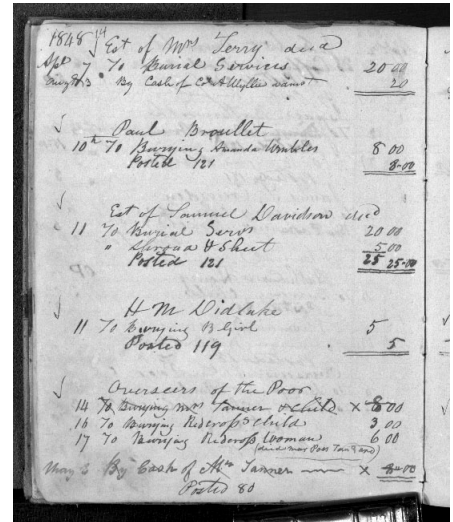 1848
Est of Mrs Terry decd
Apl 7 To Burial Services 20 00
Aug 3 By Cash of Col A Wyllie 20
Paul Broullet
10th To Burying Amanda Umbles 8 00
Posted 121 8.00
Est of Samuel Davidson decd
11 To Burial Servs 20 00
" Shroud & Sheet 5 00
Posted 121 25 25.00
H M Didlake
11 To Burying B Girl 5
Posted 119 5
Overseers of the Poor
14 To Burying Mrs Tanner & Child × 8 00
16 To Burying Redcross Child 3 00
17 To Burying Redcross Woman 6 00
(died near Poor
May 3 By Cash of Mr Tanner × 8.00
Posted 80